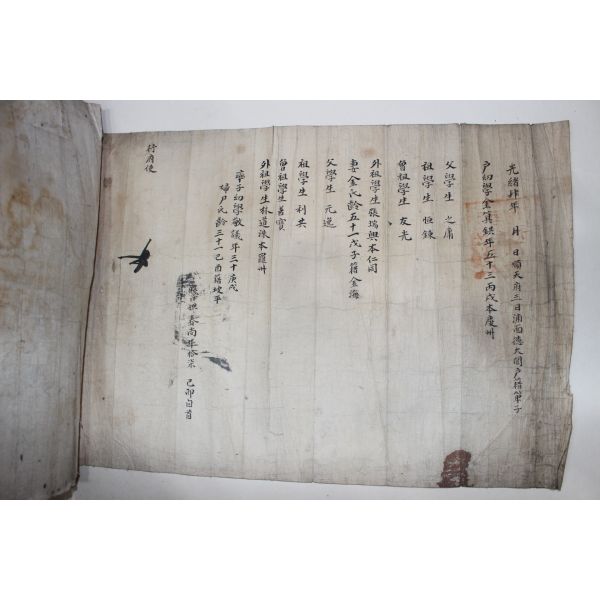 光緖肆年 月 日順天府三日浦面德大閭戶籍單子
戶幼學金箕鉷年五十三丙戌本慶州
父學生 之庸
祖學生 恒鍊
曾祖學生 友光
外祖學生張瑞興本仁同
妻金氏齡五十一戊子籍金海
父學生 元逸
祖學生 利夾
曾祖學生 善寶
外祖學生林道 本羅州
率子幼學敏議年三十庚戌
婦尹氏齡三十一己酉籍坡平
春尚年拾 己卯白首
行府使